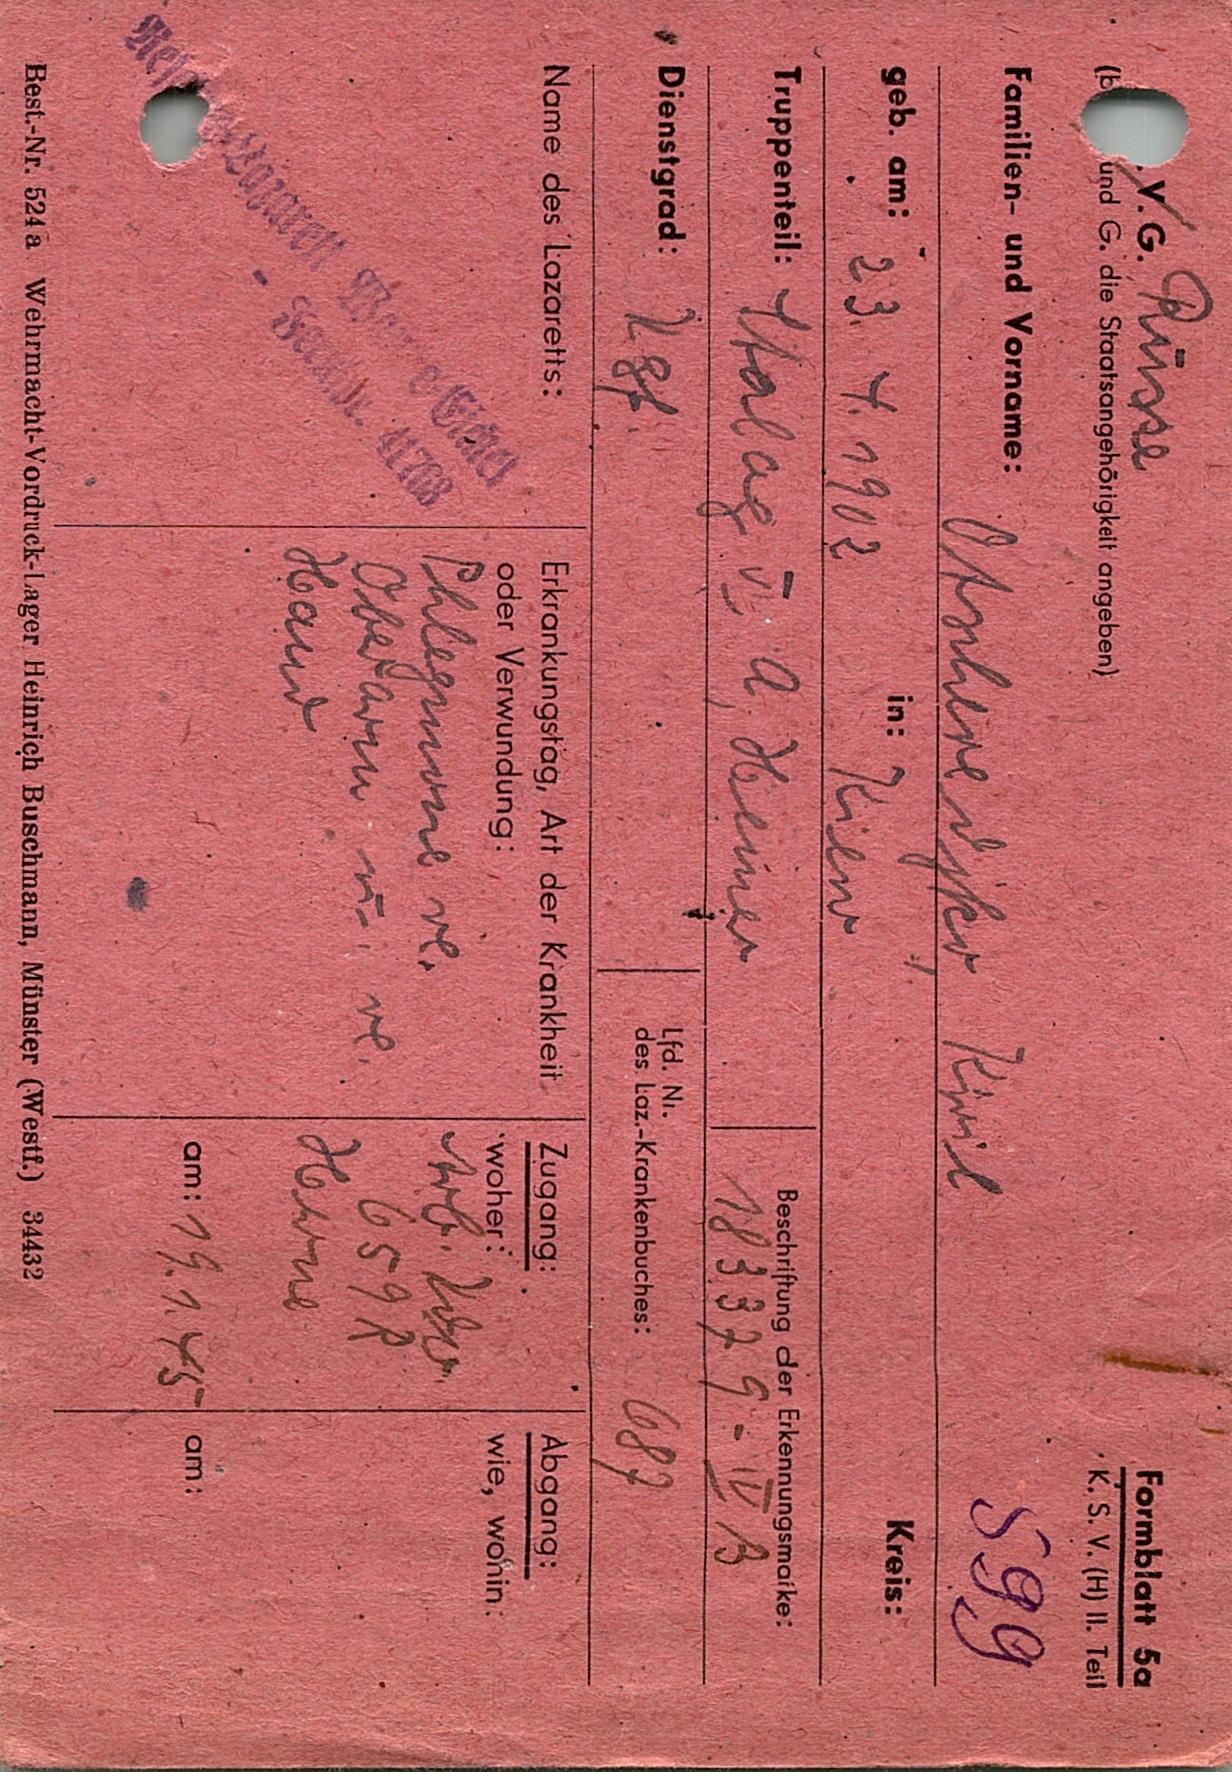 V. G. Russe
und G. die Staatsangehörigkeit angeben)
Formblatt 5a
K. S. V. (H) II. Teil
599
Familien- und Vorname: Kiril
geb. am: 23. 4. 1902 in: Kiew Kreis:
Truppenteil: Stalag VI A, Hemer
Beschriftung der Erkennungsmarke:
183379-IV B
Dienstgrad:
Lfd. Nr.
des Laz.-Krankenbuches: 687
Name des Lazaretts:
Wanne-Eickel
41768
Erkrankungstag, Art der Krankheit
oder Verwundung:
Phlegmone re.
Oberarm u. re.
Hand
Zugang:
woher:
Arb. Kdo.
659 R
Herne
am: 19.1.45
Abgang:
wie, wohin:
am:
Best.-Nr. 524a Wehrmacht-Vordruck-Lager Heinrich Buschmann, Münster (Westf.) 34432